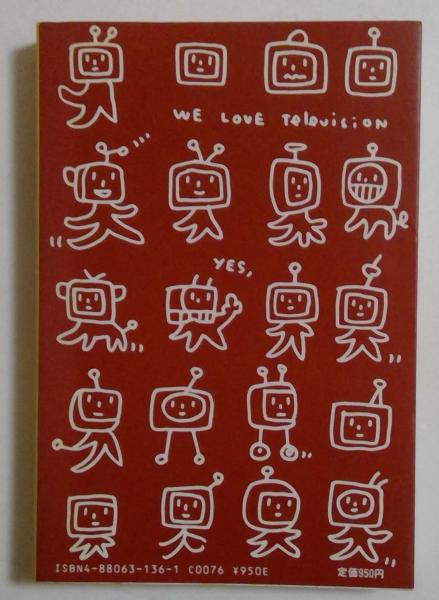 WE LOVE TeleVisiON
YES,
ISBN4-88063-136-1 C0076 ¥950E
定価950円